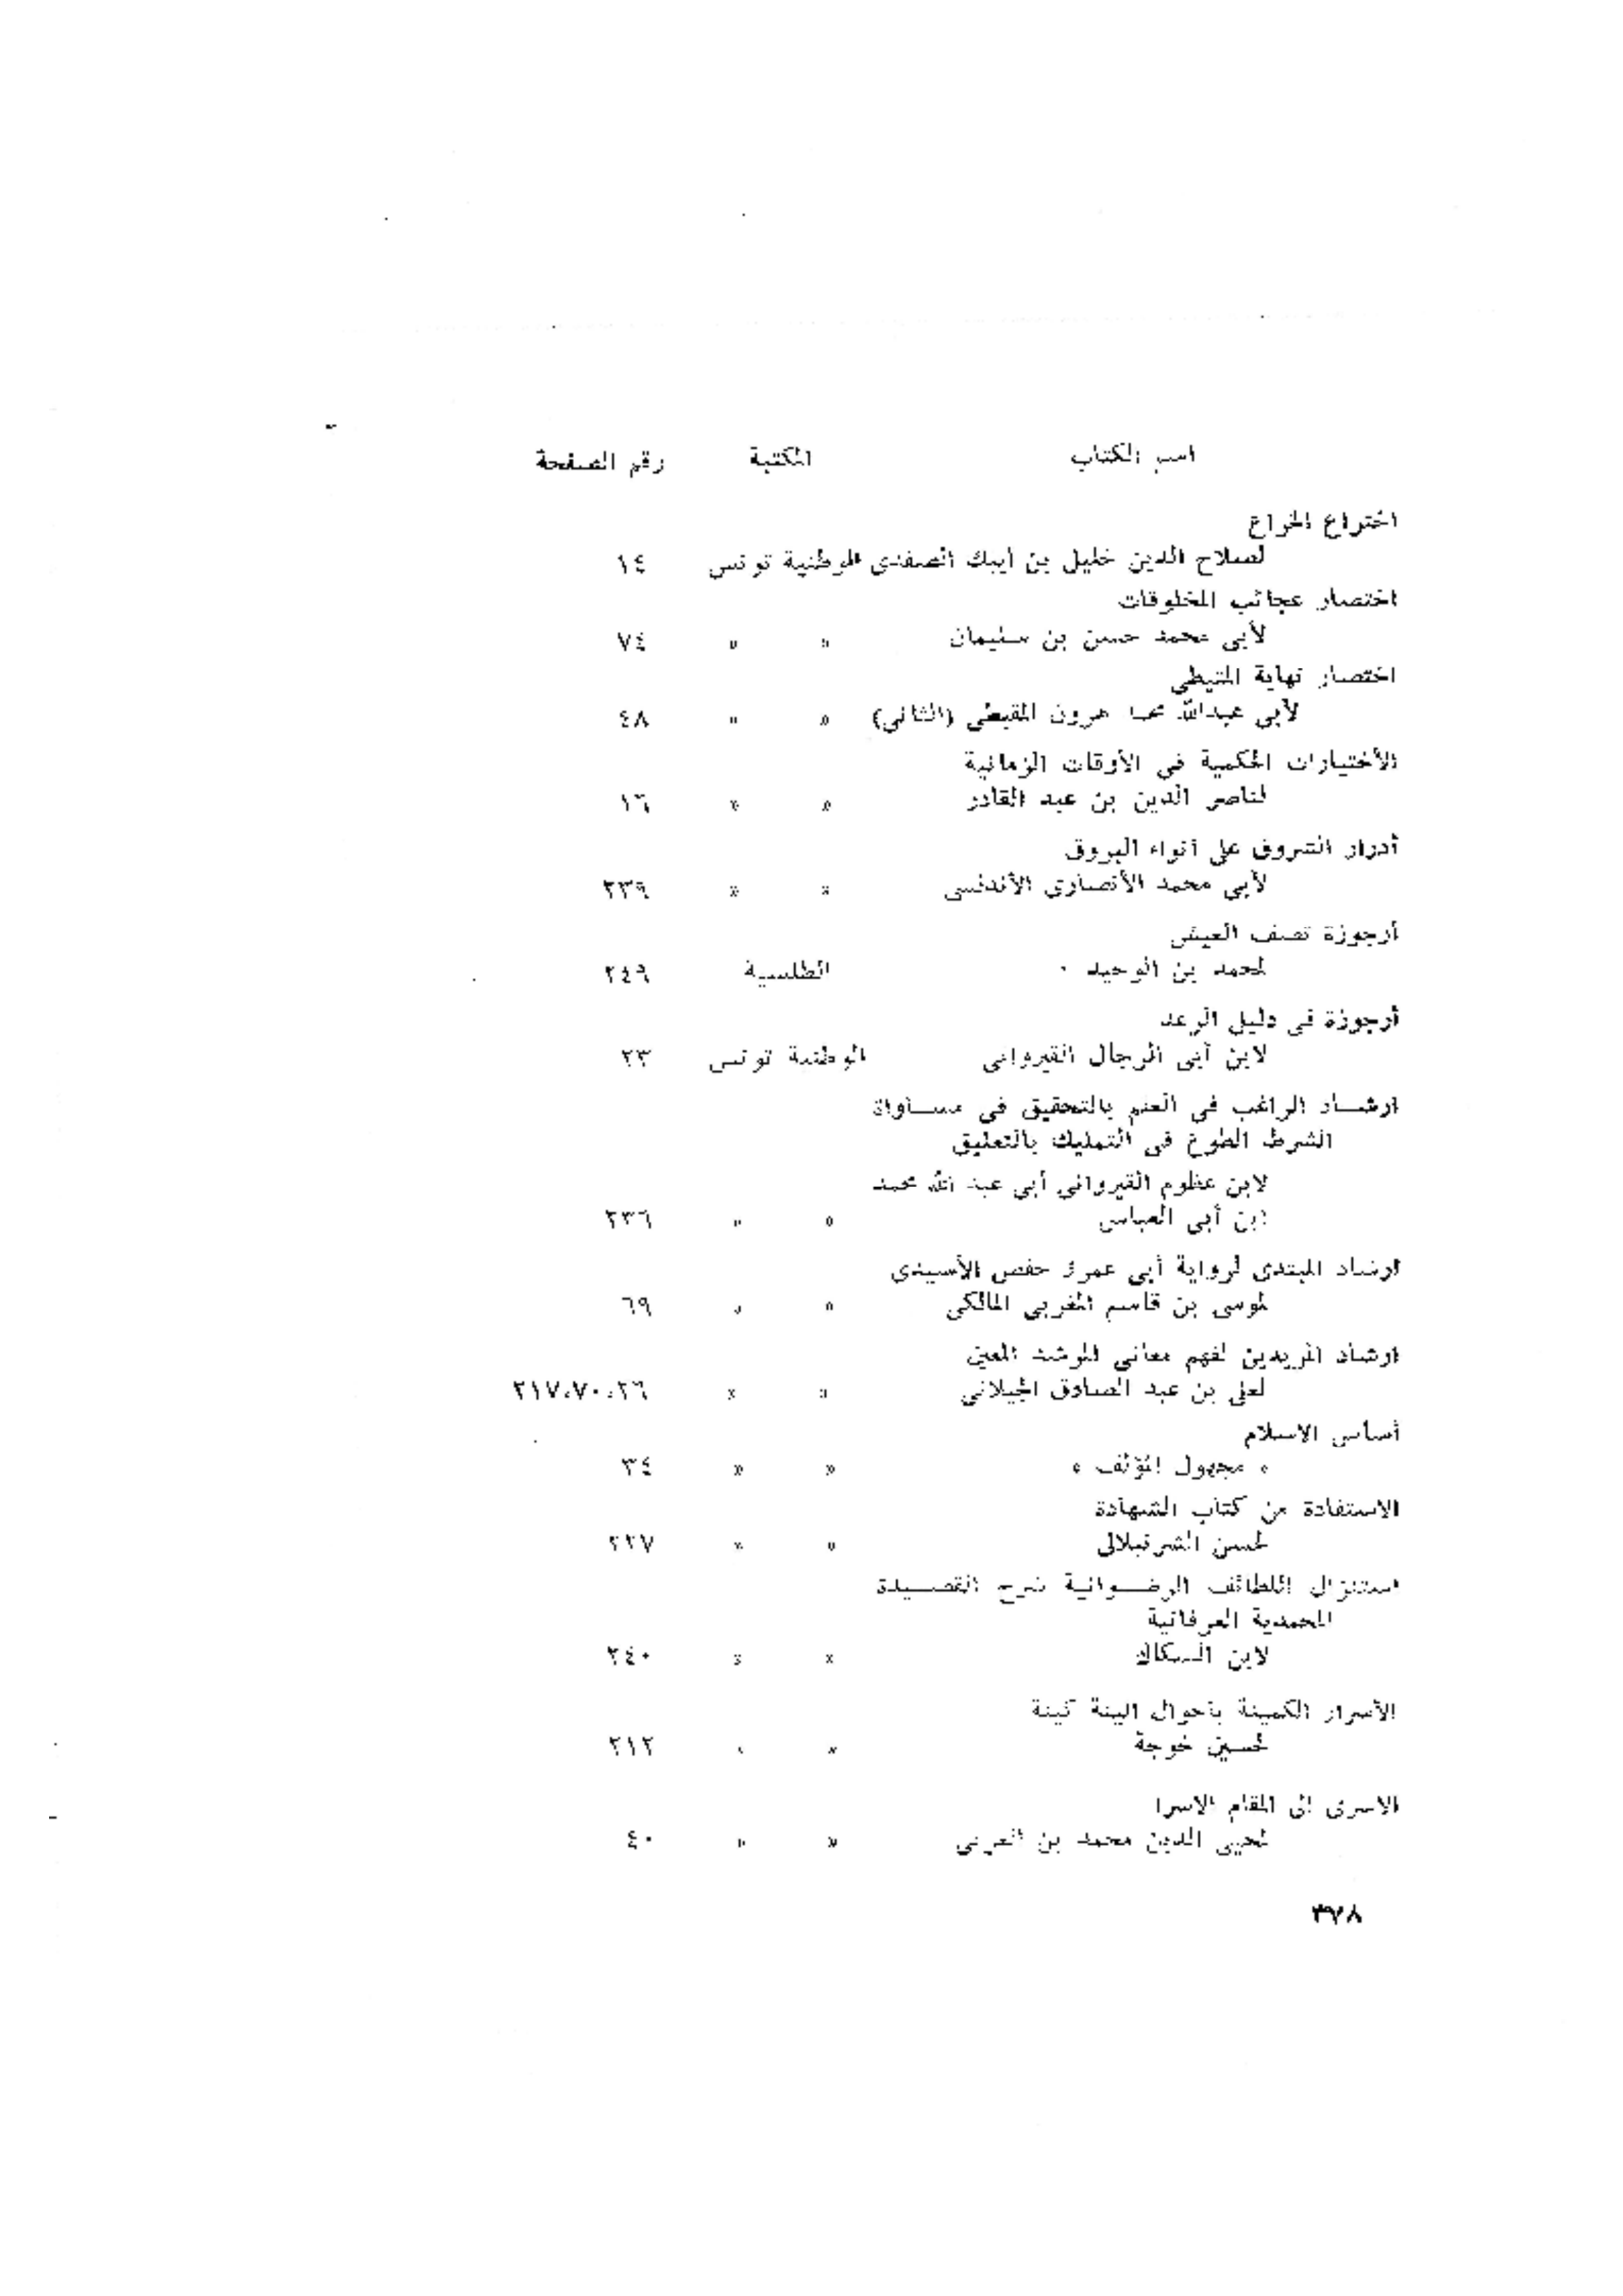 اسم الكتاب المكتبة رقم الصفحة
اختراع الخراع
لصلاح الدين خليل بن ايبك الصفدى الوطنية تونس ١٤
اختصار عجائب المخلوقات
لأبى محمد حسن بن سليمان » » ٧٤
اختصار نهاية المتيطى
لأبى عبدالله محمد هرون المقيطى (الثانى) » » ٤٨
الأختيارات الحكمية فى الأوقات الزمانية
لناصر الدين بن عبد القادر » » ١٦
أدرار الشروق على أنواء البروق
لأبى محمد الأنصارى الأندلسى » » ٢٣٩
أرجوزة نصف العيش
لمحمد بن الوحيد الطلسية ٢٤٩
أرجوزة فى دليل الرعد
لابن أبى الرجال القيروانى الوطنية تونس ٢٣
ارشـاد الراغب فى العلم بالتحقيق فى مسـاواة
الشرط الطوع فى التمليك بالتعليق
لابن عظوم القيروانى أبى عبد الله محمد
ابن أبى العباس » » ٢٣٦
ارشاد المبتدى لرواية أبى عمرو حفص الأسيدى
لموسى بن قاسم المغربى المالكى » » ٦٩
ارشاد المريدين لفهم معانى المرشد المعين
لعلى بن عبد الصادق الجيلانى » » ٢١٧،٧٠،٢٦
أساس الاسلام
« مجهول المؤلف » » » ٣٤
الاستفادة من كتاب الشهادة
لحسن الشرنبلالى » » ٢٢٧
استنزال اللطائف الرضـوانية شرح القصـيدة
المحمدية العرفانية
لابن السكاك » » ٢٤٠
الأسرار الكمينة بأحوال الينة كينة
لحسين خوجة » » ٢١٢
الاسرى الى المقام الاسرا
لمحيى الدين محمد بن العربى » » ٤٠
٣٧٨